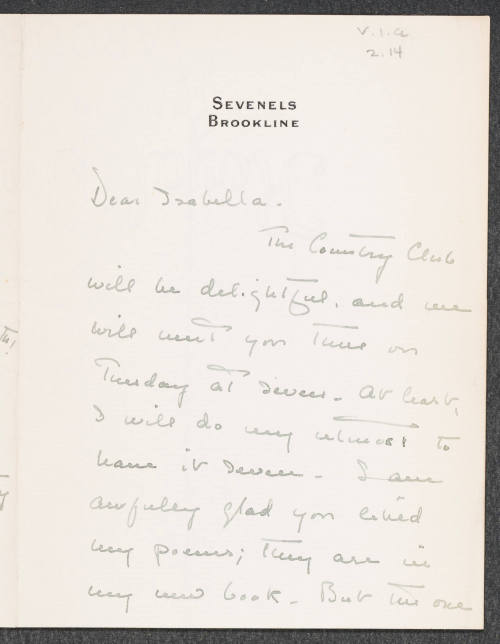 V.1.a
2.14
SEVENELS
BROOKLINE
Dear Isabella.
The Country Club
will be delightful, and we
will meet you there on
Tuesday at seven. At least,
I will do my utmost to
have it seven. I am
awfully glad you liked
my poems; they are in
my new book. But the one